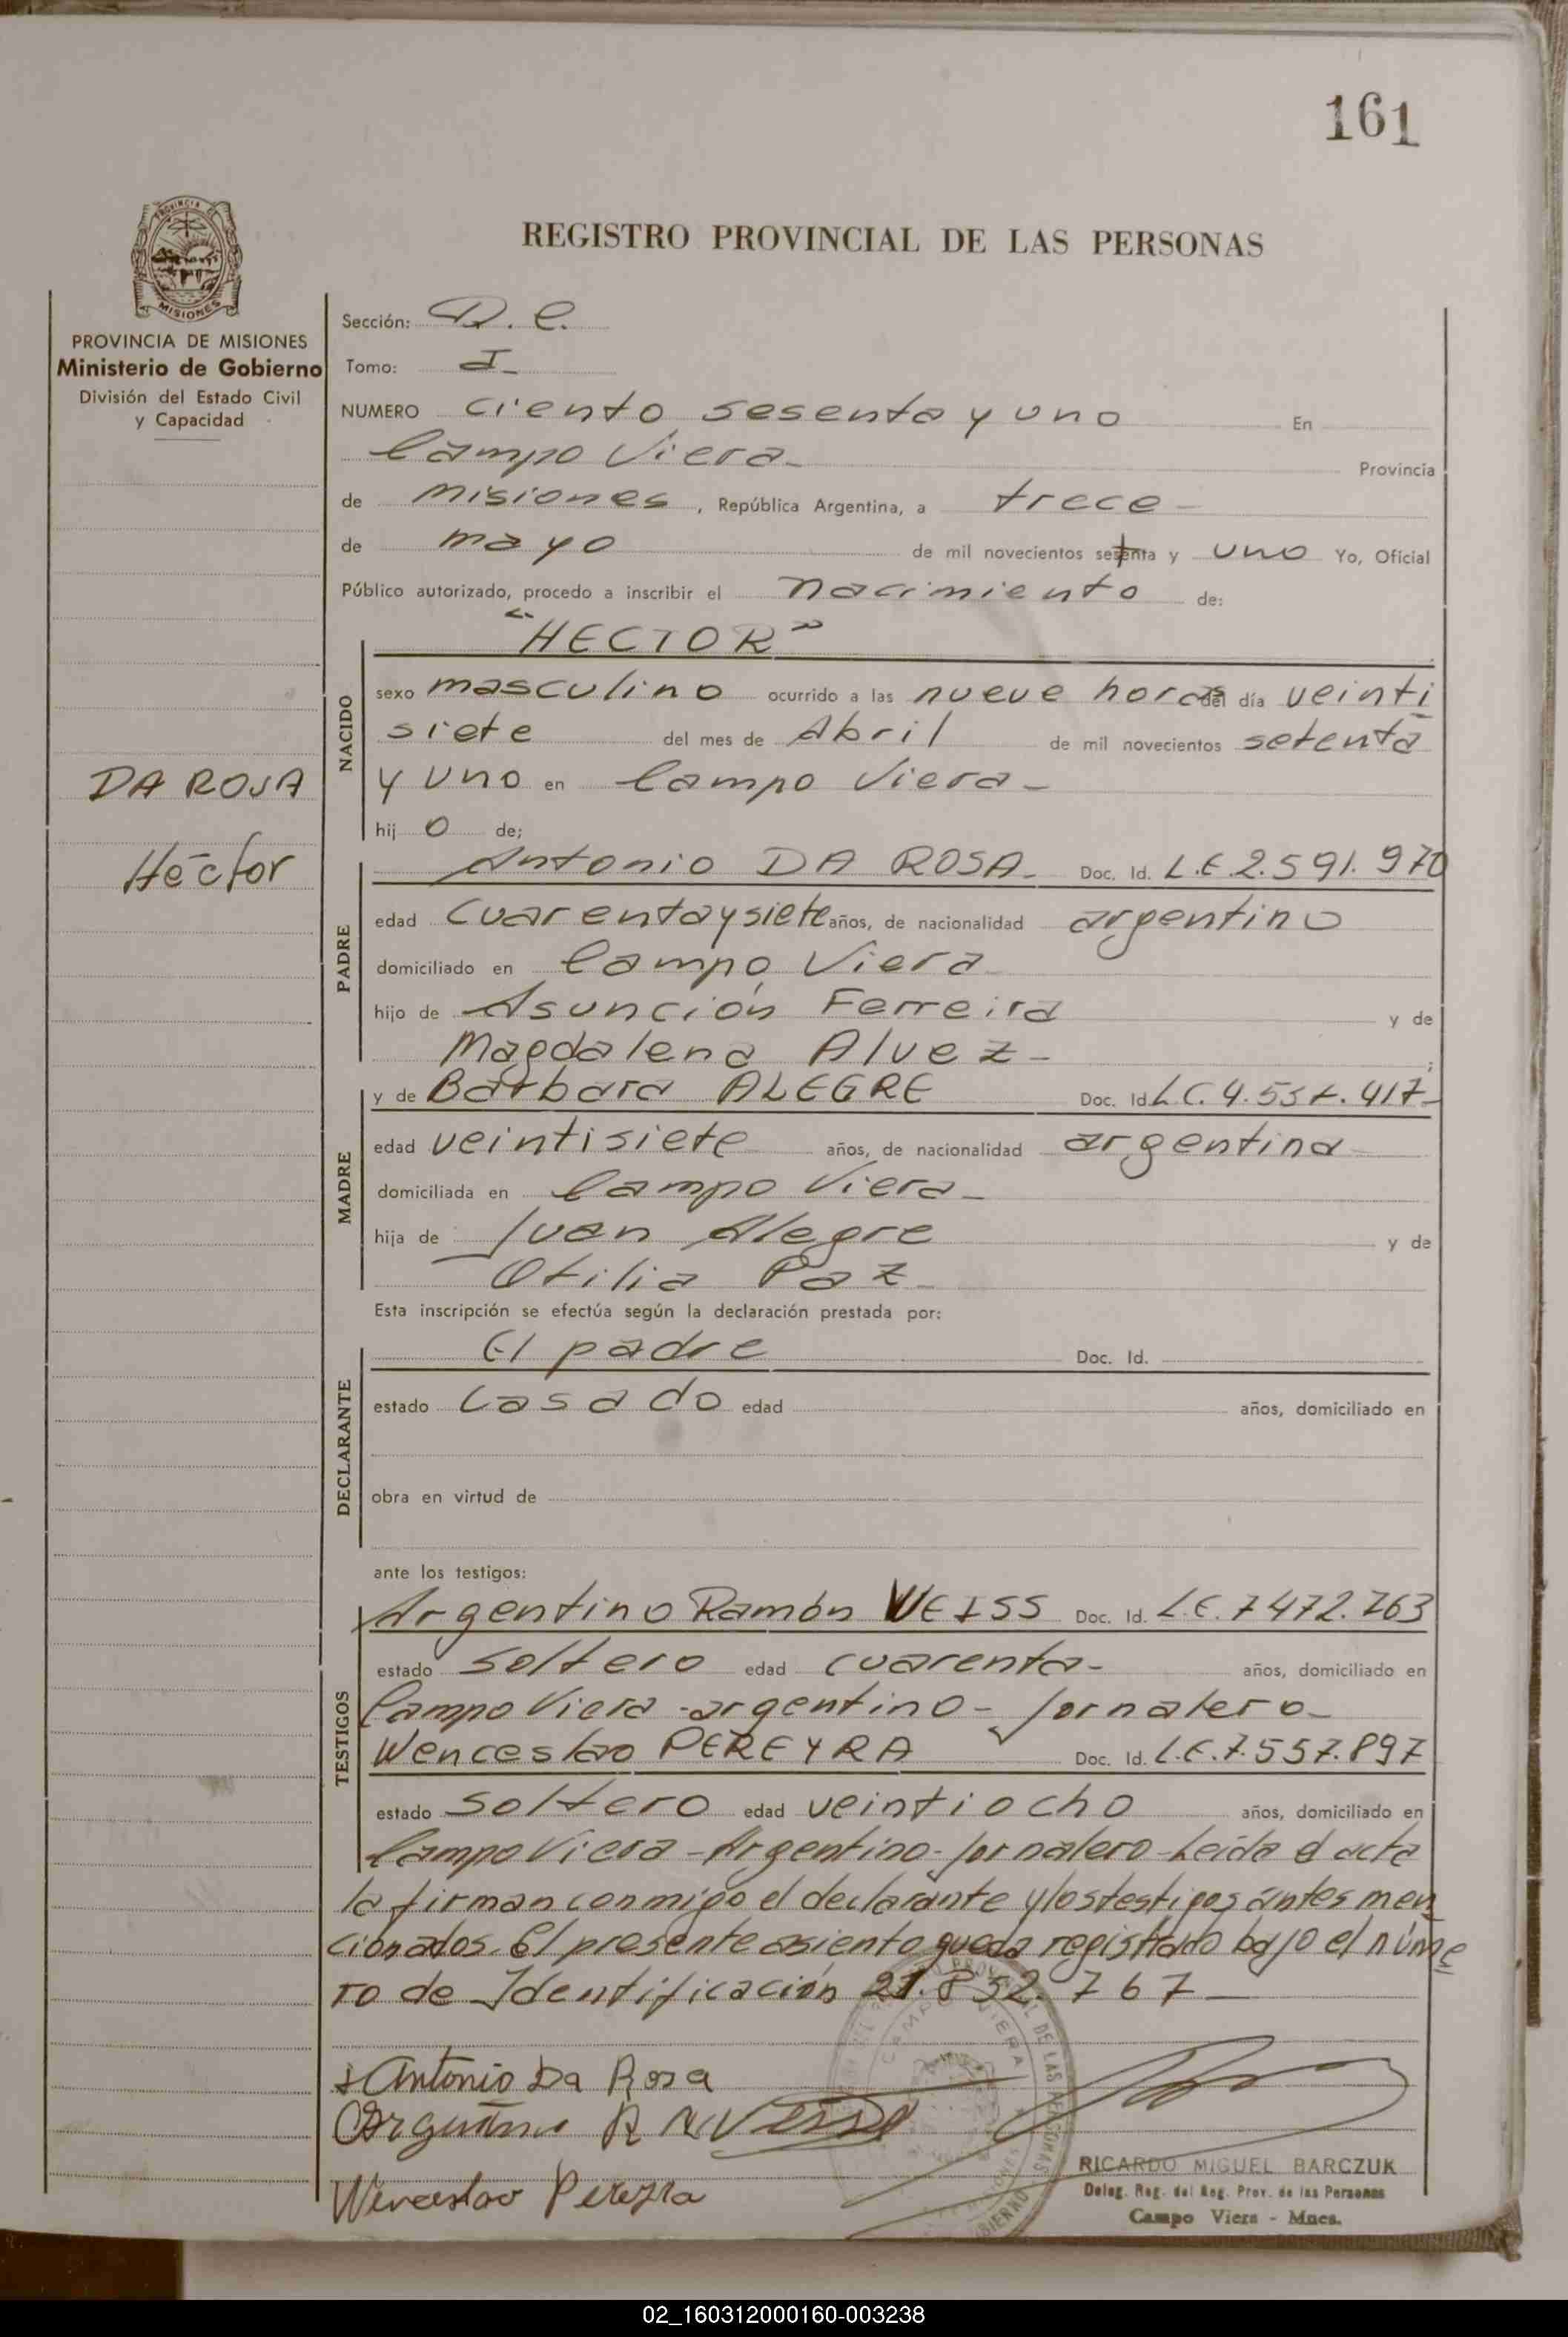 161
REGISTRO PROVINCIAL DE LAS PERSONAS
PROVINCIA DE MISIONES
Ministerio de Gobierno
División del Estado Civil
y Capacidad
DA ROSA
Héctor
Sección: D. C.
Tomo: I_
NUMERO ciento sesenta y uno En
Campo Viera_ Provincia
de Misiones, República Argentina, a trece -
de mayo de mil novecientos setenta y uno Yo, Oficial
Público autorizado, procedo a inscribir el nacimiento de:
"HECTOR"
NACIDO
sexo masculino ocurrido a las nueve horas del día veinti
siete del mes de Abril de mil novecientos setenta
y uno en Campo Viera_
hij o de;
PADRE
Antonio DA ROSA_ Doc. Id. L.E 2.591.970
edad cuarenta y siete años, de nacionalidad argentino
domiciliado en Campo Viera
hijo de Asunción Ferreira y de
Magdalena Alvez- ;
MADRE
y de Bárbara ALEGRE Doc. Id. L.C. 417-
edad veintisiete años, de nacionalidad argentina
domiciliada en Campo Viera_
hija de Juan Alegre y de
Otilia Paz_
Esta inscripción se efectúa según la declaración prestada por:
DECLARANTE
El padre Doc. Id.
estado casado edad años, domiciliado en
obra en virtud de
ante los testigos:
TESTIGOS
Argentino Ramón WEISS Doc. Id. L.E. 7472.763
estado soltero edad cuarenta- años, domiciliado en
Campo Viera -argentino- jornalero_
Wenceslao PEREYRA Doc. Id. L.E.7.557.897
estado soltero edad veintiocho años, domiciliado en
Campo Viera -Argentino- jornalero -Leída el acta
la firman conmigo el declarante y los testigos ántes men
cionados. El presente asiento queda registrado bajo el núme
ro de Identificación 21.852.767_
Antonio Da Rosa
Argentino R Weiss
Wenceslao Pereyra
RICARDO MIGUEL BARCZUK
Deleg. Reg. del Reg. Prov. de las Personas
Campo Viera - Mnes.
02_160312000160-003238